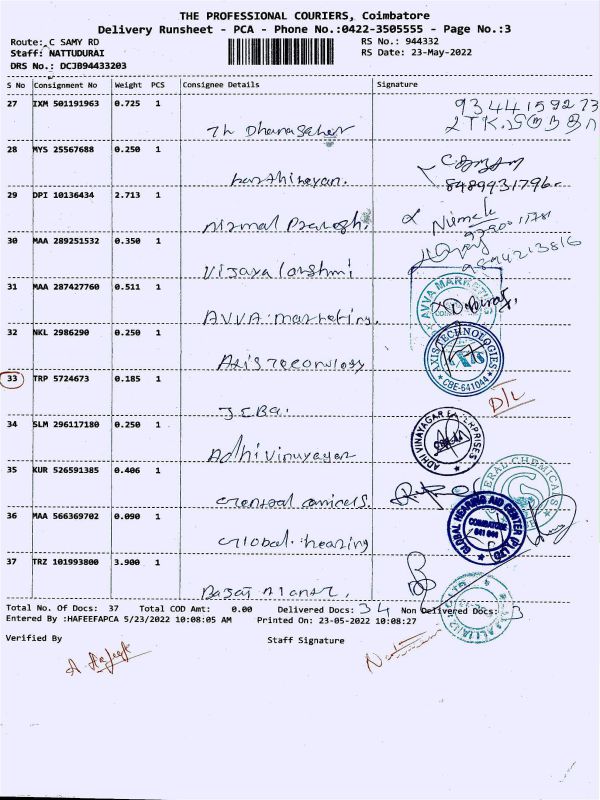 THE PROFESSIONAL COURIERS, Coimbatore
Delivery Runsheet - PCA - Phone No.:0422-3505555 - Page No.:3
Route: C SAMY RD
RS No.: 944332
Staff: NATTUDURAI
RS Date: 23-May-2022
DRS No.: DCJB94433203
S No Consignment No Weight PCS Consignee Details Signature
27 IXM 501191963 0.725 1
9344159273
Th Dhanasaker
28 MYS 25567688 0.250 1
karthikeyan.
8489931796
29 DPI 10136434 2.713 1
Nirmal
30 MAA 289251532 0.350 1
9894213816
Vijaya
31 MAA 287427760 0.511 1
AVVA MARKETING
AVVA. marketing.
32 NKL 2986290 0.250 1
AXIS TECHNOLOGIES
CBE-641044
Axis Tecnology
33 TRP 5724673 0.185 1
D/L
JEBA.
34 SLM 296117180 0.250 1
ADHI VINAYAGAR ENTERPRISES
Adhi vinayagar
35 KUR 526591385 0.406 1
GENERAL CHEMICALS
36 MAA 566369702 0.090 1
GLOBAL HEARING AID CENTER P LTD
COIMBATORE
641 044
Global. hearing
37 TRZ 101993800 3.900 1
Bajaj
Total No. Of Docs: 37 Total COD Amt: 0.00 Delivered Docs: 34 Non Delivered Docs: 3
Entered By :HAFEEFAPCA 5/23/2022 10:08:05 AM Printed On: 23-05-2022 10:08:27
Verified By
Staff Signature